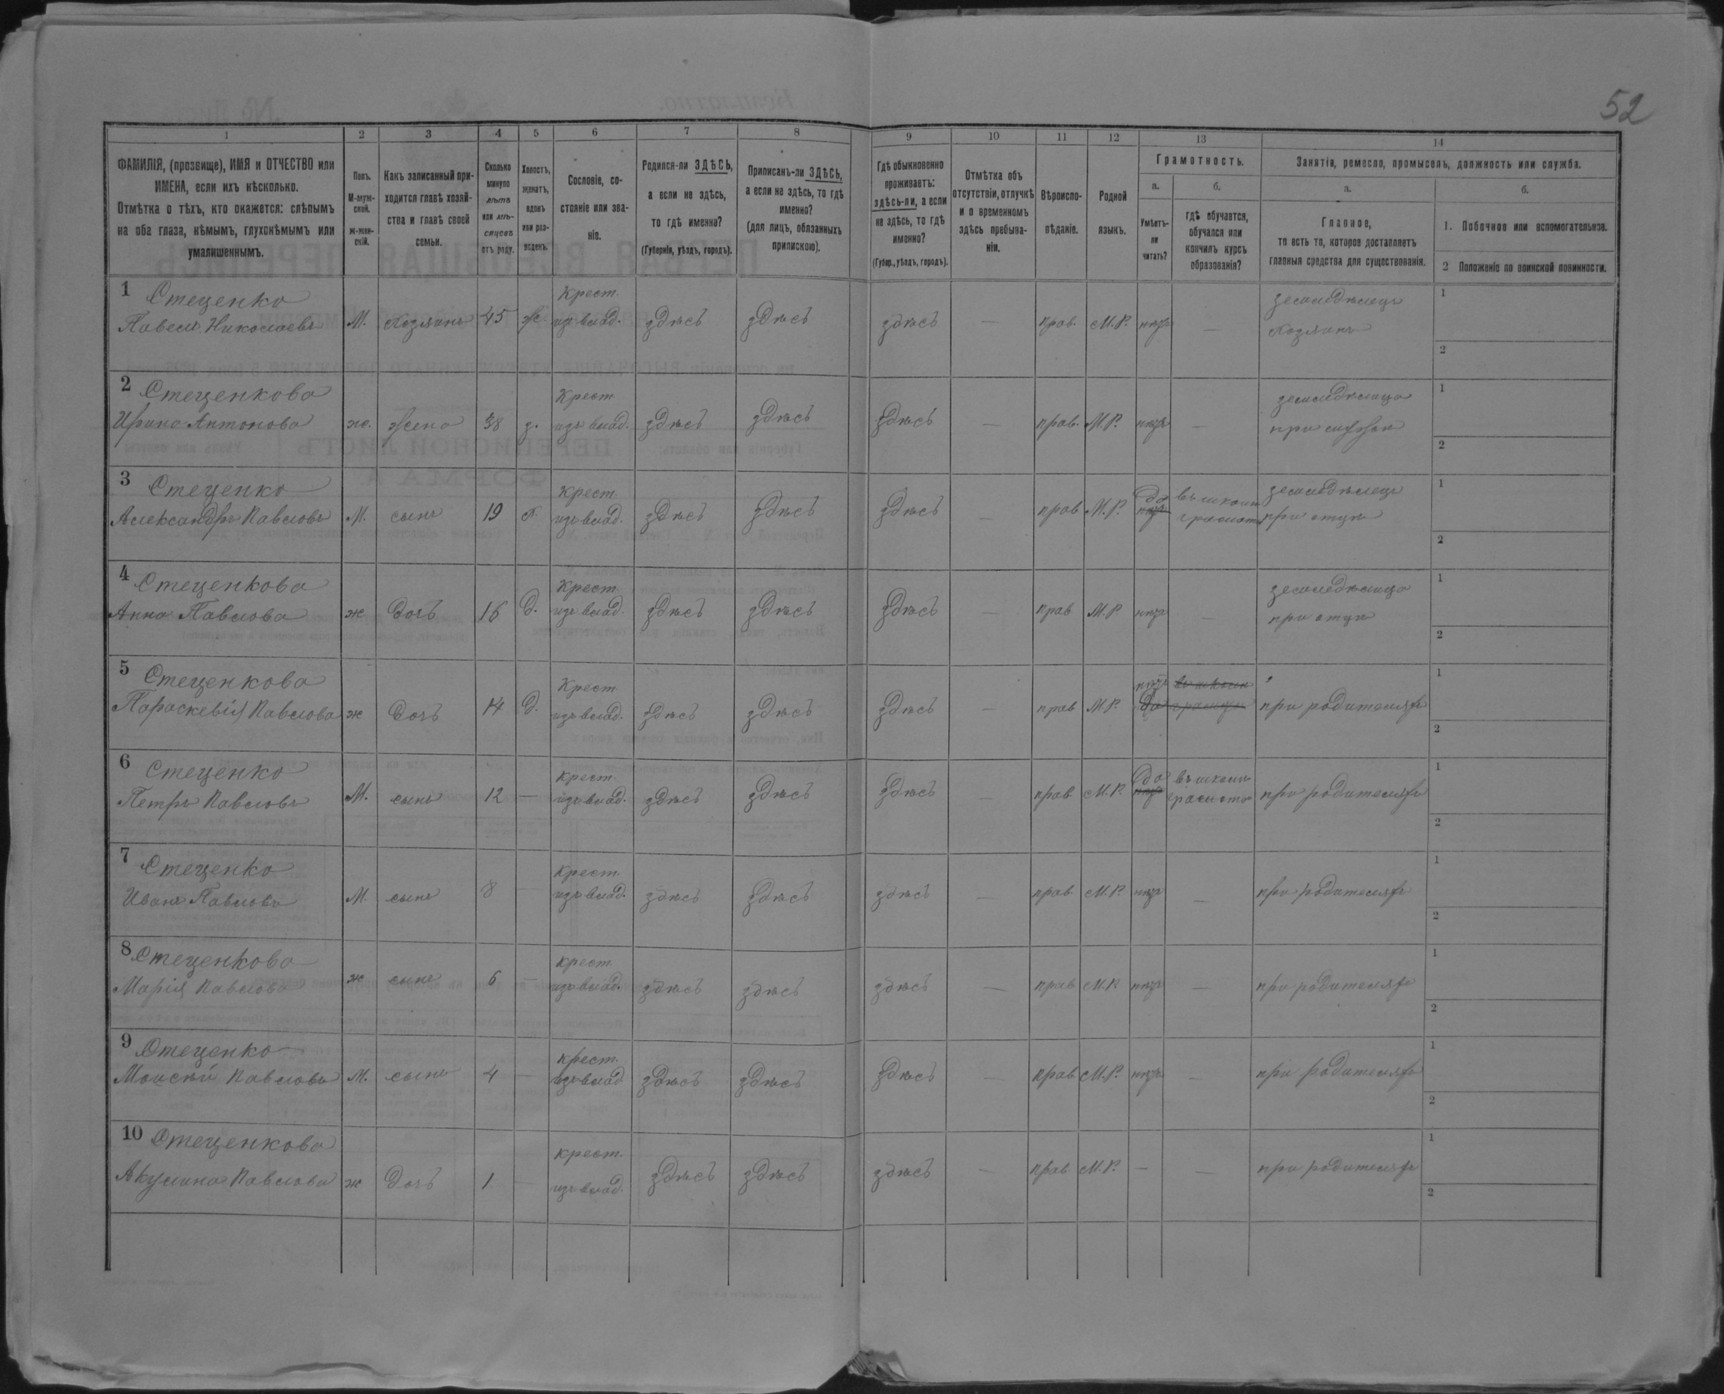 52
1 2 3 4 5 6 7 8 9 10 11 12 13 14
ФАМИЛІЯ, (прозвище), ИМЯ и ОТЧЕСТВО или
ИМЕНА, если ихъ нѣсколько.
Отмѣтка о тѣхъ, кто окажется: слѣпымъ
на оба глаза, нѣмымъ, глухонѣмымъ или
умалишеннымъ.
Полъ.
М-муж-
ской.
ж-жен-
скій.
Какъ записанный при-
ходится главѣ хозяй-
ства и главѣ своей
семьи.
Сколько
минуло
лѣтъ
или мѣ-
сяцевъ
отъ роду.
Холостъ,
женатъ,
вдовъ
или раз-
веденъ.
Сословіе, со-
стояніе или зва-
ніе.
Родился-ли ЗДѢСЬ,
а если не здѣсь,
то гдѣ именно?
(Губернія, уѣздъ, городъ).
Приписанъ-ли ЗДѢСЬ,
а если не здѣсь, то гдѣ
именно?
(для лицъ, обязанныхъ
припискою).
Гдѣ обыкновенно
проживаетъ:
здѣсь-ли, а если
не здѣсь, то гдѣ
именно?
(Губер., уѣздъ, городъ).
Отмѣтка объ
отсутствіи, отлучкѣ
и о временномъ
здѣсь пребыва-
ніи.
Вѣроиспо-
вѣданіе.
Родной
языкъ.
Грамотность.
а. б.
Умѣетъ-
ли
читать?
гдѣ обучается,
обучался или
кончилъ курсъ
образованія?
Занятія, ремесло, промыселъ, должность или служба.
а. б.
Главное,
то есть то, которое доставляетъ
главныя средства для существованія.
1. Побочное или вспомогательное.
2 Положеніе по воинской повинности.
1 Стеценко Крест. земледѣлецъ 1
Павелъ Николаевъ М. хозяинъ 45 ж изъ влад. здѣсь здѣсь здѣсь — прав М.Р. нѣтъ — хозяинъ
2
2 Стеценкова Крест земледѣлица 1
Ирина Антонова ж. жена 38 з. изъ влад. здѣсь здѣсь здѣсь — прав. М.Р. нѣтъ — при мужѣ
2
3 Стеценко Крест. да въ школѣ земледѣлецъ 1
Александръ Павловъ М. сынъ 19 х. изъ влад. здѣсь здѣсь здѣсь — прав М.Р. нѣтъ грамоты при отцѣ
2
4 Стеценкова Крест. земледѣлица 1
Анна Павлова ж дочь 16 д. изъ влад. здѣсь здѣсь здѣсь — прав М.Р. нѣтъ — при отцѣ
2
5 Стеценкова Крест нѣтъ въ школѣ 1
Параскевія Павлова ж дочь 14 д. изъ влад. здѣсь здѣсь здѣсь — прав М.Р. да грамоты при родителяхъ
2
6 Стеценко Крест. да въ школѣ 1
Петръ Павловъ М. сынъ 12 — изъ влад. здѣсь здѣсь здѣсь — прав М.Р. нѣтъ грамоты при родителяхъ
2
7 Стеценко Крест. 1
Иванъ Павловъ М. сынъ 8 — изъ влад. здѣсь здѣсь здѣсь — прав М.Р. нѣтъ — при родителяхъ
2
8 Стеценкова крест. 1
Марія Павлова ж сынъ 6 — изъ влад. здѣсь здѣсь здѣсь — прав М.Р. нѣтъ — при родителяхъ
2
9 Стеценко крест. 1
Моисей Павловъ М. сынъ 4 — изъ влад здѣсь здѣсь здѣсь — прав М.Р. нѣтъ — при родителяхъ
2
10 Стеценкова крест. 1
Акулина Павлова ж дочь 1 — изъ влад. здѣсь здѣсь здѣсь — прав М.Р. — — при родителяхъ
2